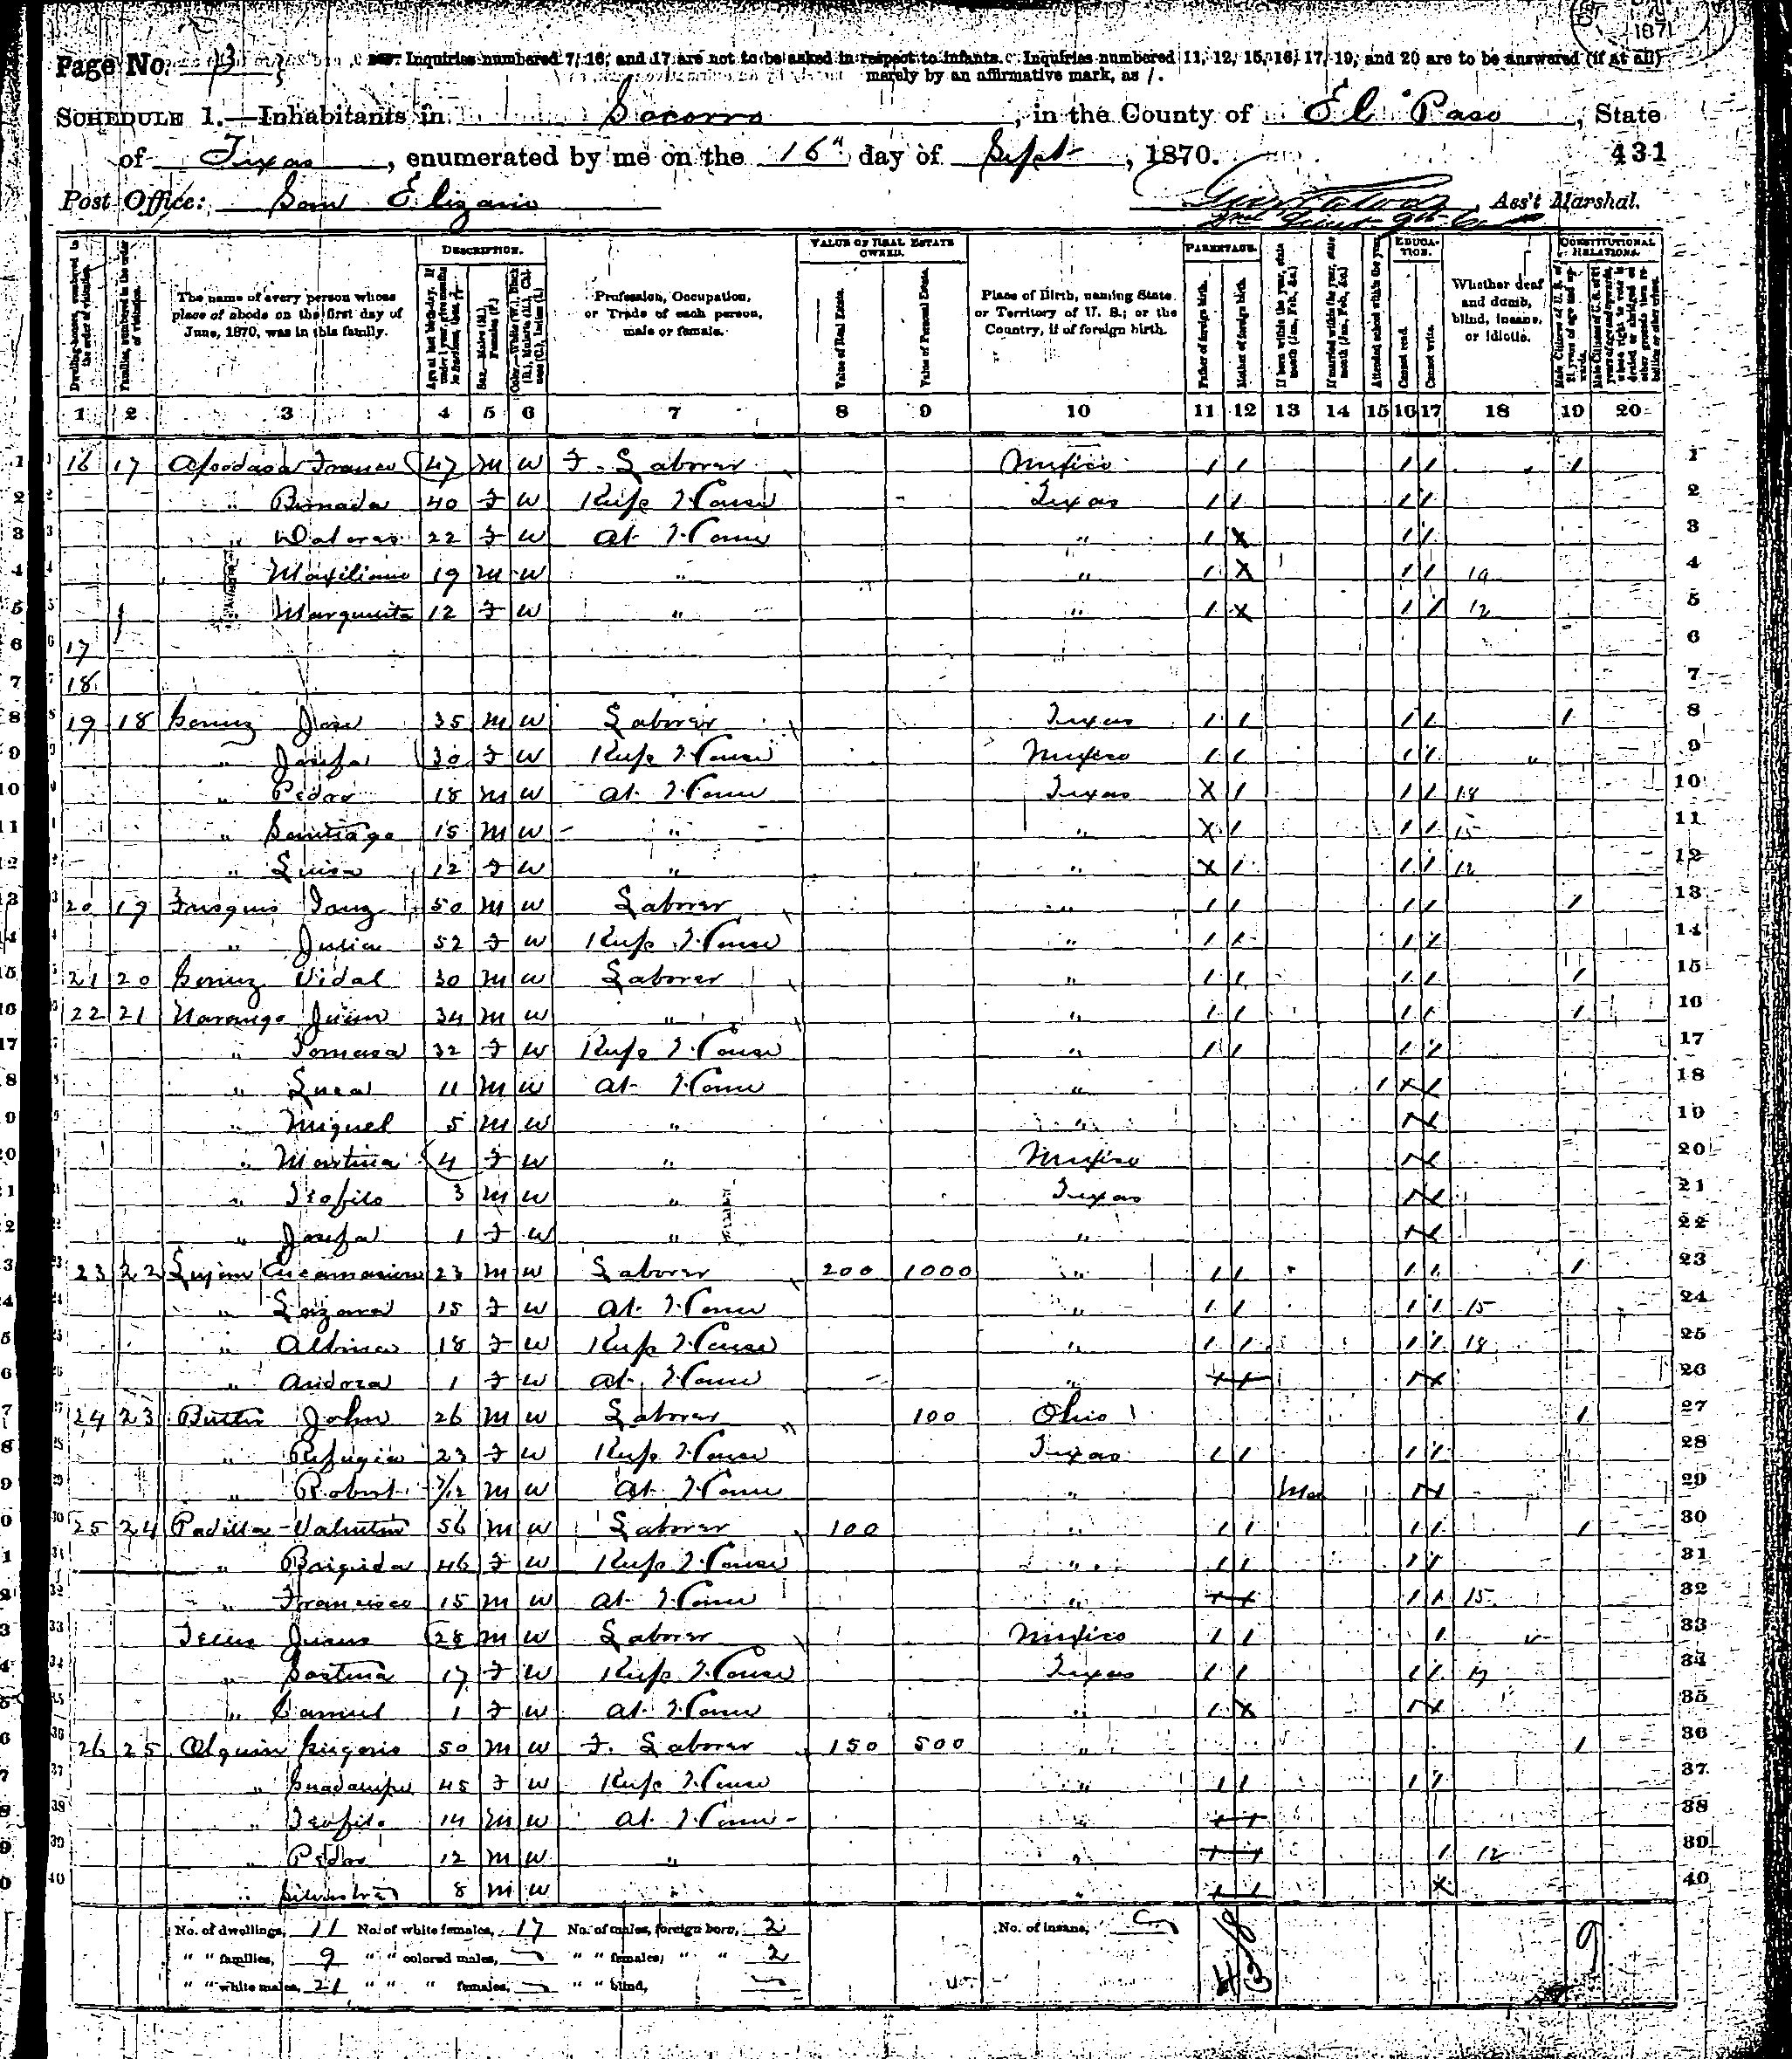 1871
Page No. 13 Inquiries numbered 7, 16, and 17 are not to be asked in respect to infants. Inquiries numbered 11, 12, 15, 16, 17, 19, and 20 are to be answered (if at all)
merely by an affirmative mark, as /.
SCHEDULE 1.—Inhabitants in Socorro, in the County of El Paso, State
of Texas, enumerated by me on the 16th day of Sept, 1870. 431
Post Office: San Elizario Ass't Marshal.
Dwelling-houses, numbered in the order of visitation.
Families, numbered in the order of visitation.
The name of every person whose place of abode on the first day of June, 1870, was in this family.
DESCRIPTION.
Age at last birth-day. If under 1 year, give months in fractions, thus,
Sex.—Males (M.), Females (F.)
Color.—White (W.), Black (B.), Mulatto (M.), Chinese (C.), Indian (I.)
Profession, Occupation, or Trade of each person, male or female.
VALUE OF REAL ESTATE OWNED.
Value of Real Estate.
Value of Personal Estate.
Place of Birth, naming State or Territory of U. S.; or the Country, if of foreign birth.
PARENTAGE.
Father of foreign birth.
Mother of foreign birth.
If born within the year, state month (Jan., Feb., &c.)
If married within the year, state month (Jan., Feb., &c.)
Attended school within the year.
EDUCATION.
Cannot read.
Cannot write.
Whether deaf and dumb, blind, insane, or idiotic.
CONSTITUTIONAL RELATIONS.
Male Citizens of U. S. of 21 years of age and upwards.
Male Citizens of U. S. of 21 years of age and upwards, whose right to vote is denied or abridged on other grounds than rebellion or other crime.
1 2 3 4 5 6 7 8 9 10 11 12 13 14 15 16 17 18 19 20
1 16 17 Apodaca Franco 47 M W F. Laborer Mexico / / / / / 1
2 " 40 F W Keeps House Texas / / / / 2
3 " Dolores 22 F W At Home " / X / / 3
4 " Maxiliano 19 M W " " / X / / 19 4
5 " Marguerita 12 F W " " / X / / 12 5
6 17 6
7 18 7
8 19 18 Jose 35 M W Laborer Texas / / / / / 8
9 " Josefa 30 F W Keeps House Mexico / / / / 9
10 " Pedro 18 M W At Home Texas X / / / 18 10
11 " Santiago 15 M W " " X / / / 15 11
12 " Luisa 12 F W " " X / / / 12 12
13 20 19 50 M W Laborer " / / / / / 13
14 " Julia 52 F W Keeps House " / / / / 14
15 21 20 Vidal 30 M W Laborer " / / / / / 15
16 22 21 Narango Juan 34 M W " " / / / / / 16
17 " Tomasa 32 F W Keeps House " / / / / 17
18 " Luca 11 M W At Home " / X / 18
19 " Miguel 5 M W " " 19
20 " Martina 4 F W " Mexico 20
21 " Teofilo 3 M W " Texas 21
22 " Josefa 1 F W " " 22
23 23 22 Lujan Encarnacion 23 M W Laborer 200 1000 " / / / / / 23
24 " Lazara 15 F W At Home " / / / / 15 24
25 " Albina 18 F W Keeps House " / / / / 18 25
26 " 1 F W At Home " 26
27 24 23 John 26 M W Laborer 100 Ohio / 27
28 " Refugia 23 F W Keeps House Texas / / / / 28
29 " Robert /12 M W At Home " Mar 29
30 25 24 Padilla Valentin 56 M W Laborer 100 " / / / / / 30
31 " Brigida 46 F W Keeps House " / / / / 31
32 " Francisco 15 M W At Home " / / 15 32
33 Jesus 28 M W Laborer Mexico / / / 33
34 " 17 F W Keeps House Texas / / / / 17 34
35 " 1 F W At Home " / X 35
36 26 25 Olguin 50 M W F. Laborer 150 500 " / 36
37 " Guadalupe 45 F W Keeps House " / / / / 37
38 " Teofilo 14 M W At Home " 38
39 " Pedro 12 M W " " / 12 39
40 " 8 M W " " X 40
No. of dwellings, 11 No. of white females, 17 No. of males, foreign born, 2 No. of insane,
" " families, 9 " " colored males, " " females, " " 2 9
" " white males, 21 " " " females, " " blind,